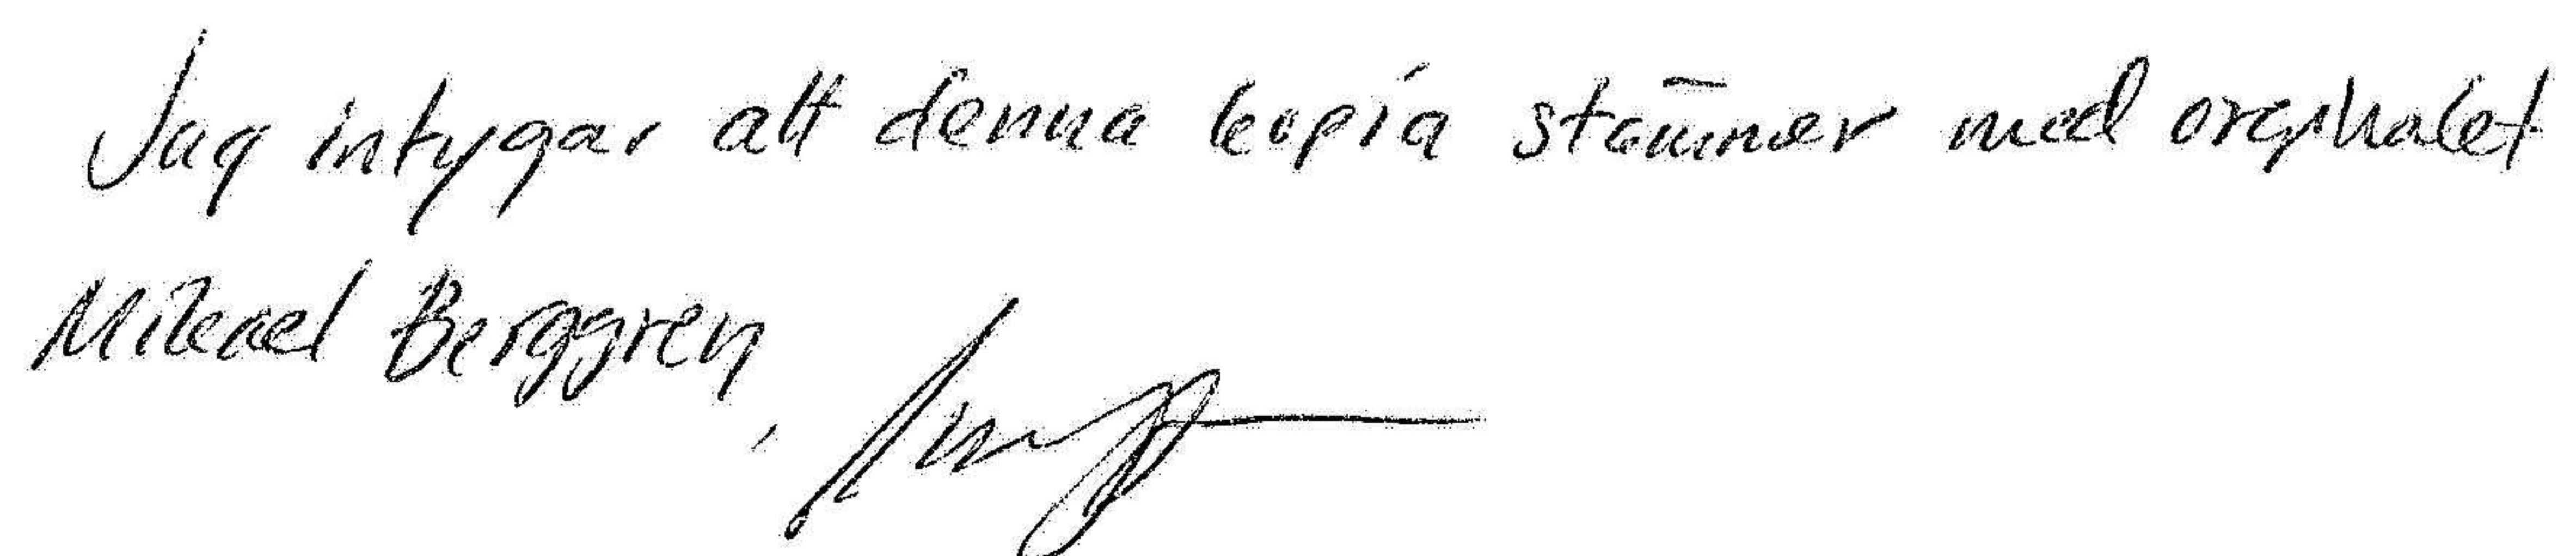 Jag intygar att denna kopia stämmer med orginalet
Mikael Berggren,